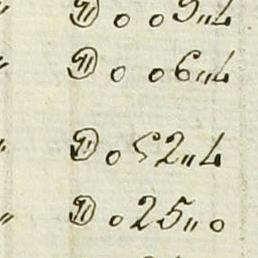 " D o o9"4
" D o o6"4
" D o 52"4
" D o 25"o